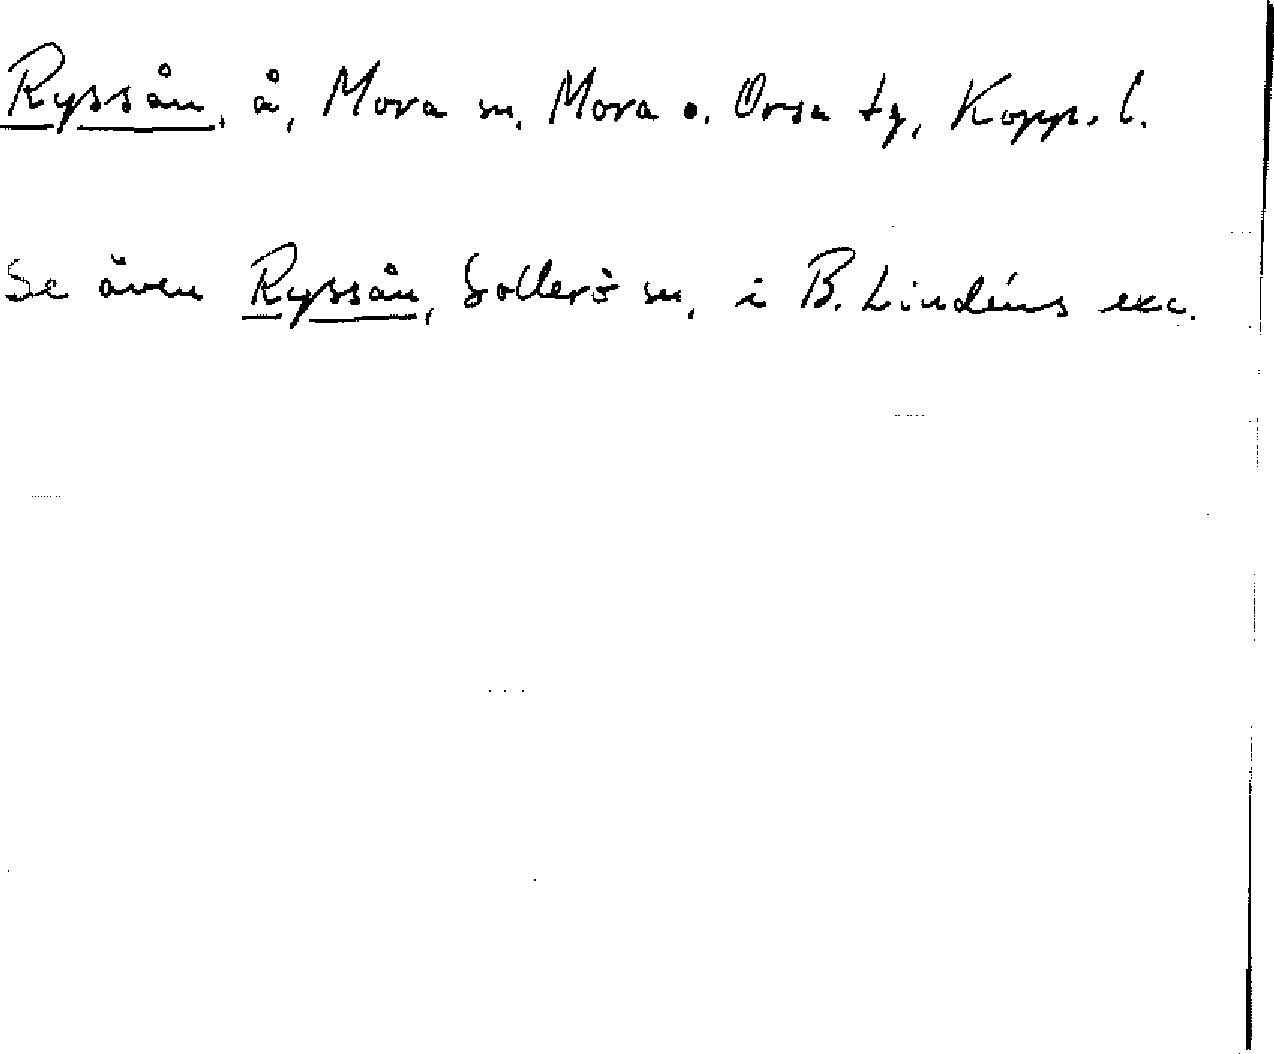 Ryssån, å, Mora sn, Mora o. Orsa tg, Kopp. l.
Se även Ryssån, Sollerö sn, i B. Lindéns exc.